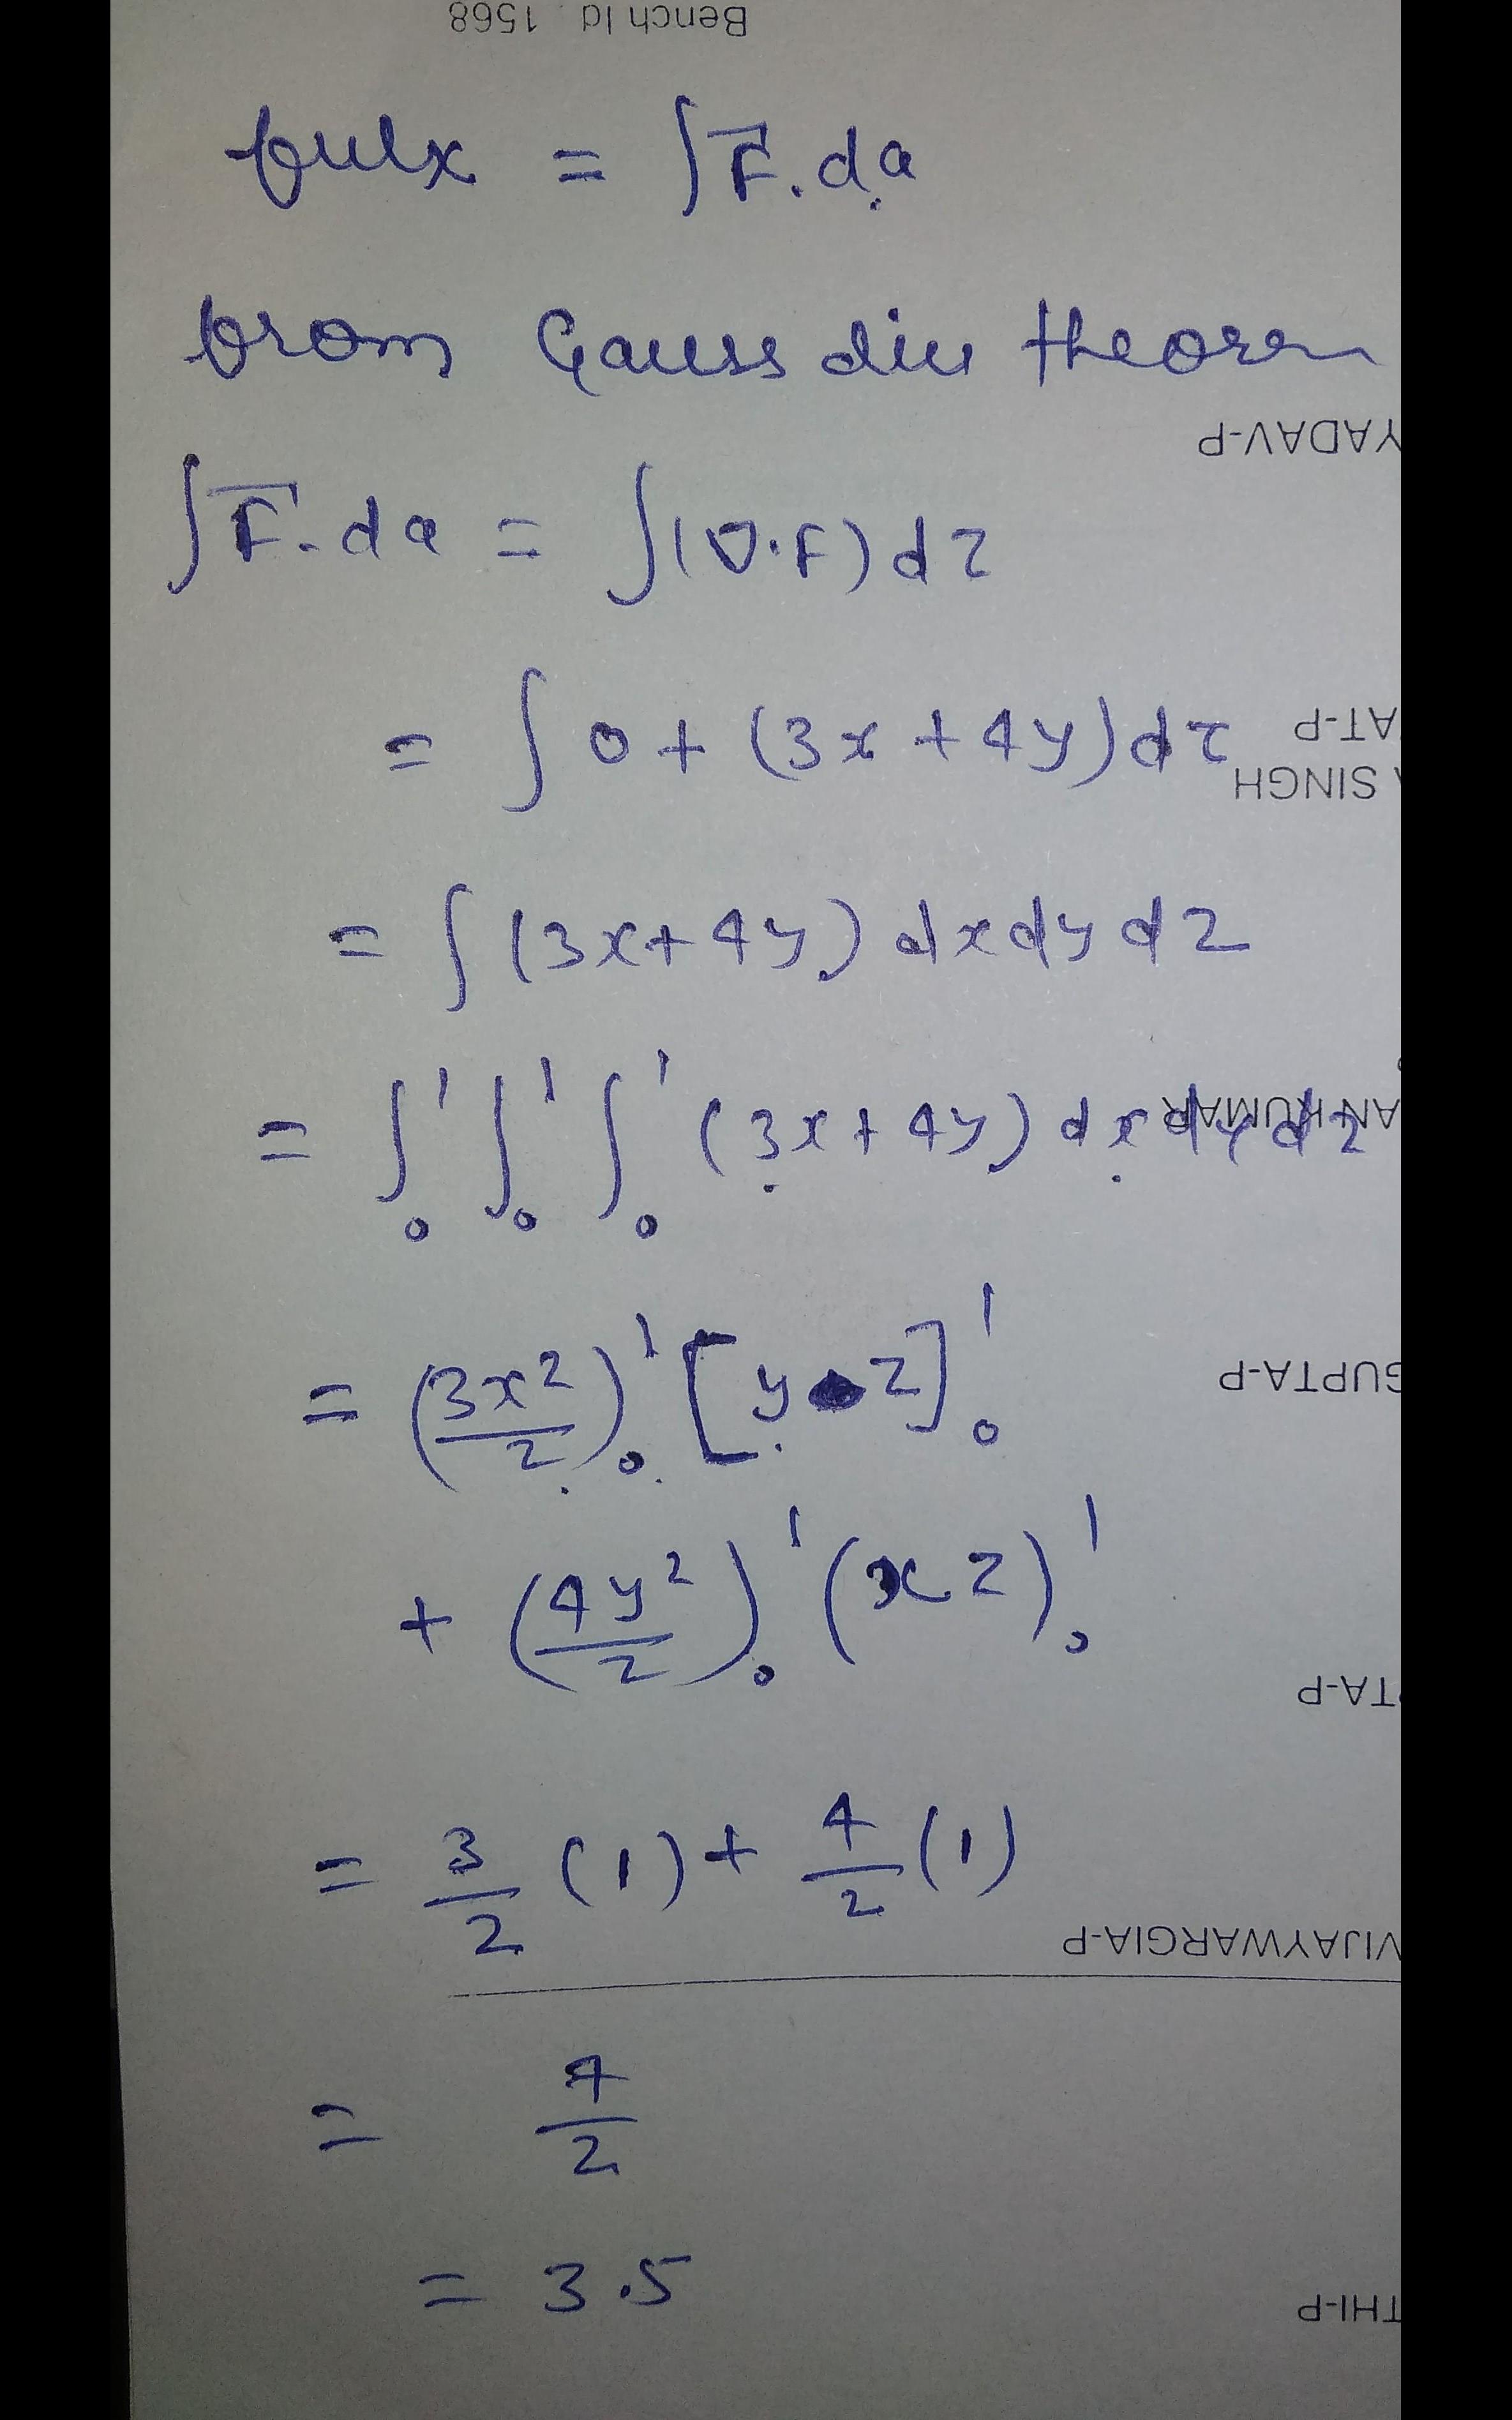 Bench Id 1568
fulx = ∫F̅.da
from Gauss div theorem
YADAV-P
∫F̅.da = ∫(∇.F)dτ
AT-P
= ∫ 0 + (3x + 4y)dτ
SINGH
= ∫ (3x+4y) dxdydz
= ∫₀¹ ∫₀¹ ∫₀¹ (3x+4y) dx dy dz
AN KUMAR
= (3x²/2)₀¹ [y z]₀¹
GUPTA-P
+ (4y²/2)₀¹ (xz)₀¹
TA-P
= 3/2 (1) + 4/2 (1)
VIJAYWARGIA-P
= 7/2
= 3.5
THI-P